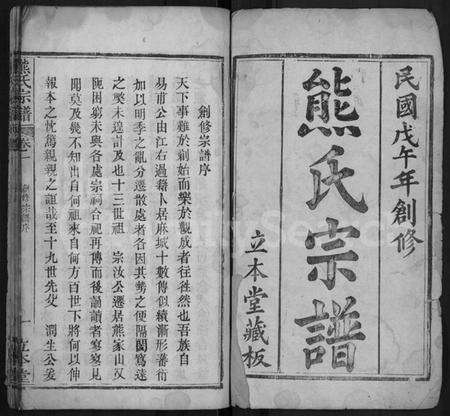 民國戊午年創修
熊氏宗譜
立本堂藏板
創修宗譜序
天下事難於創始而樂於觀成者往往然也吾族自
易甫公由江右過籍卜居麻城十數傳似續漸形蕃衍
加以明季之亂分遷散處者各因其勢之便隔闊寫遠
之獎未遑計及也十三世祖 宗汝公遷居熊家山又
匯困窮未興各處宗祠合祀再傳而後誦讀者寥寥見
聞莫及幾不知出自何祖來自何方百世下將何以伸
報本之忱篤親親之誼哉至十九世先父 潤生公爰
熊氏宗譜
卷一
創修宗譜序
一
立本堂